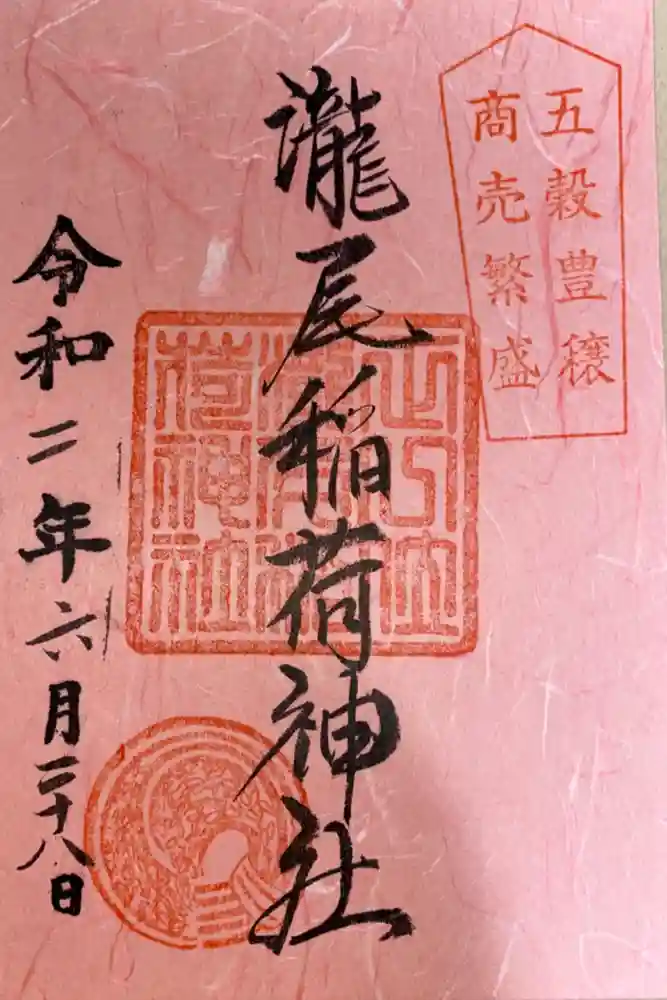 五穀豊穣
商売繁盛
瀧尾稲荷神社
令和二年六月二十八日